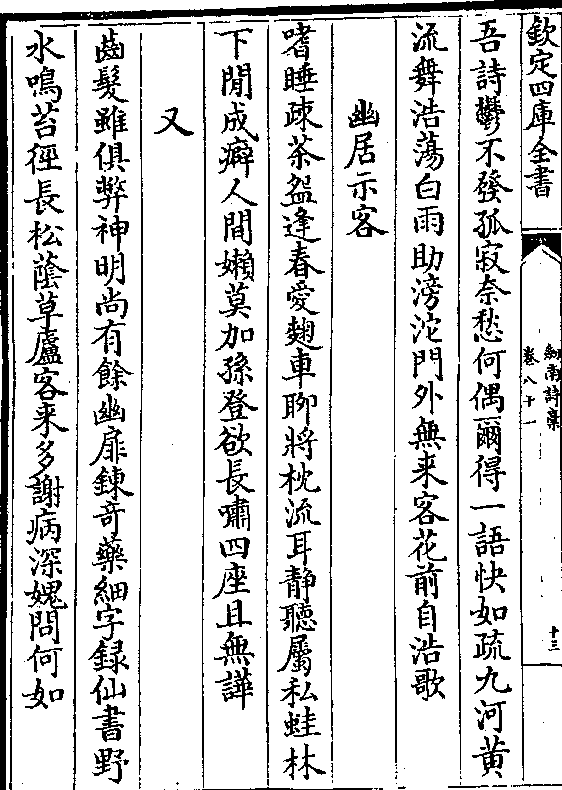 欽定四庫全書
劍南詩槀
卷八十一
十三
吾詩鬱不發孤寂奈愁何偶爾得一語快如疏九河黄
流舞浩蕩白雨助滂沱門外無来客花前自浩歌
幽居示客
嗜睡疎茶盌逢春愛麹車聊將枕流耳静聽屬私蛙林
下閒成癖人間嬾莫加孫登欲長嘯四座且無譁
又
齒髮雖俱弊神明尚有餘幽扉鍊竒藥細字録仙書野
水鳴苔徑長松蔭草廬客来多謝病深媿問何如